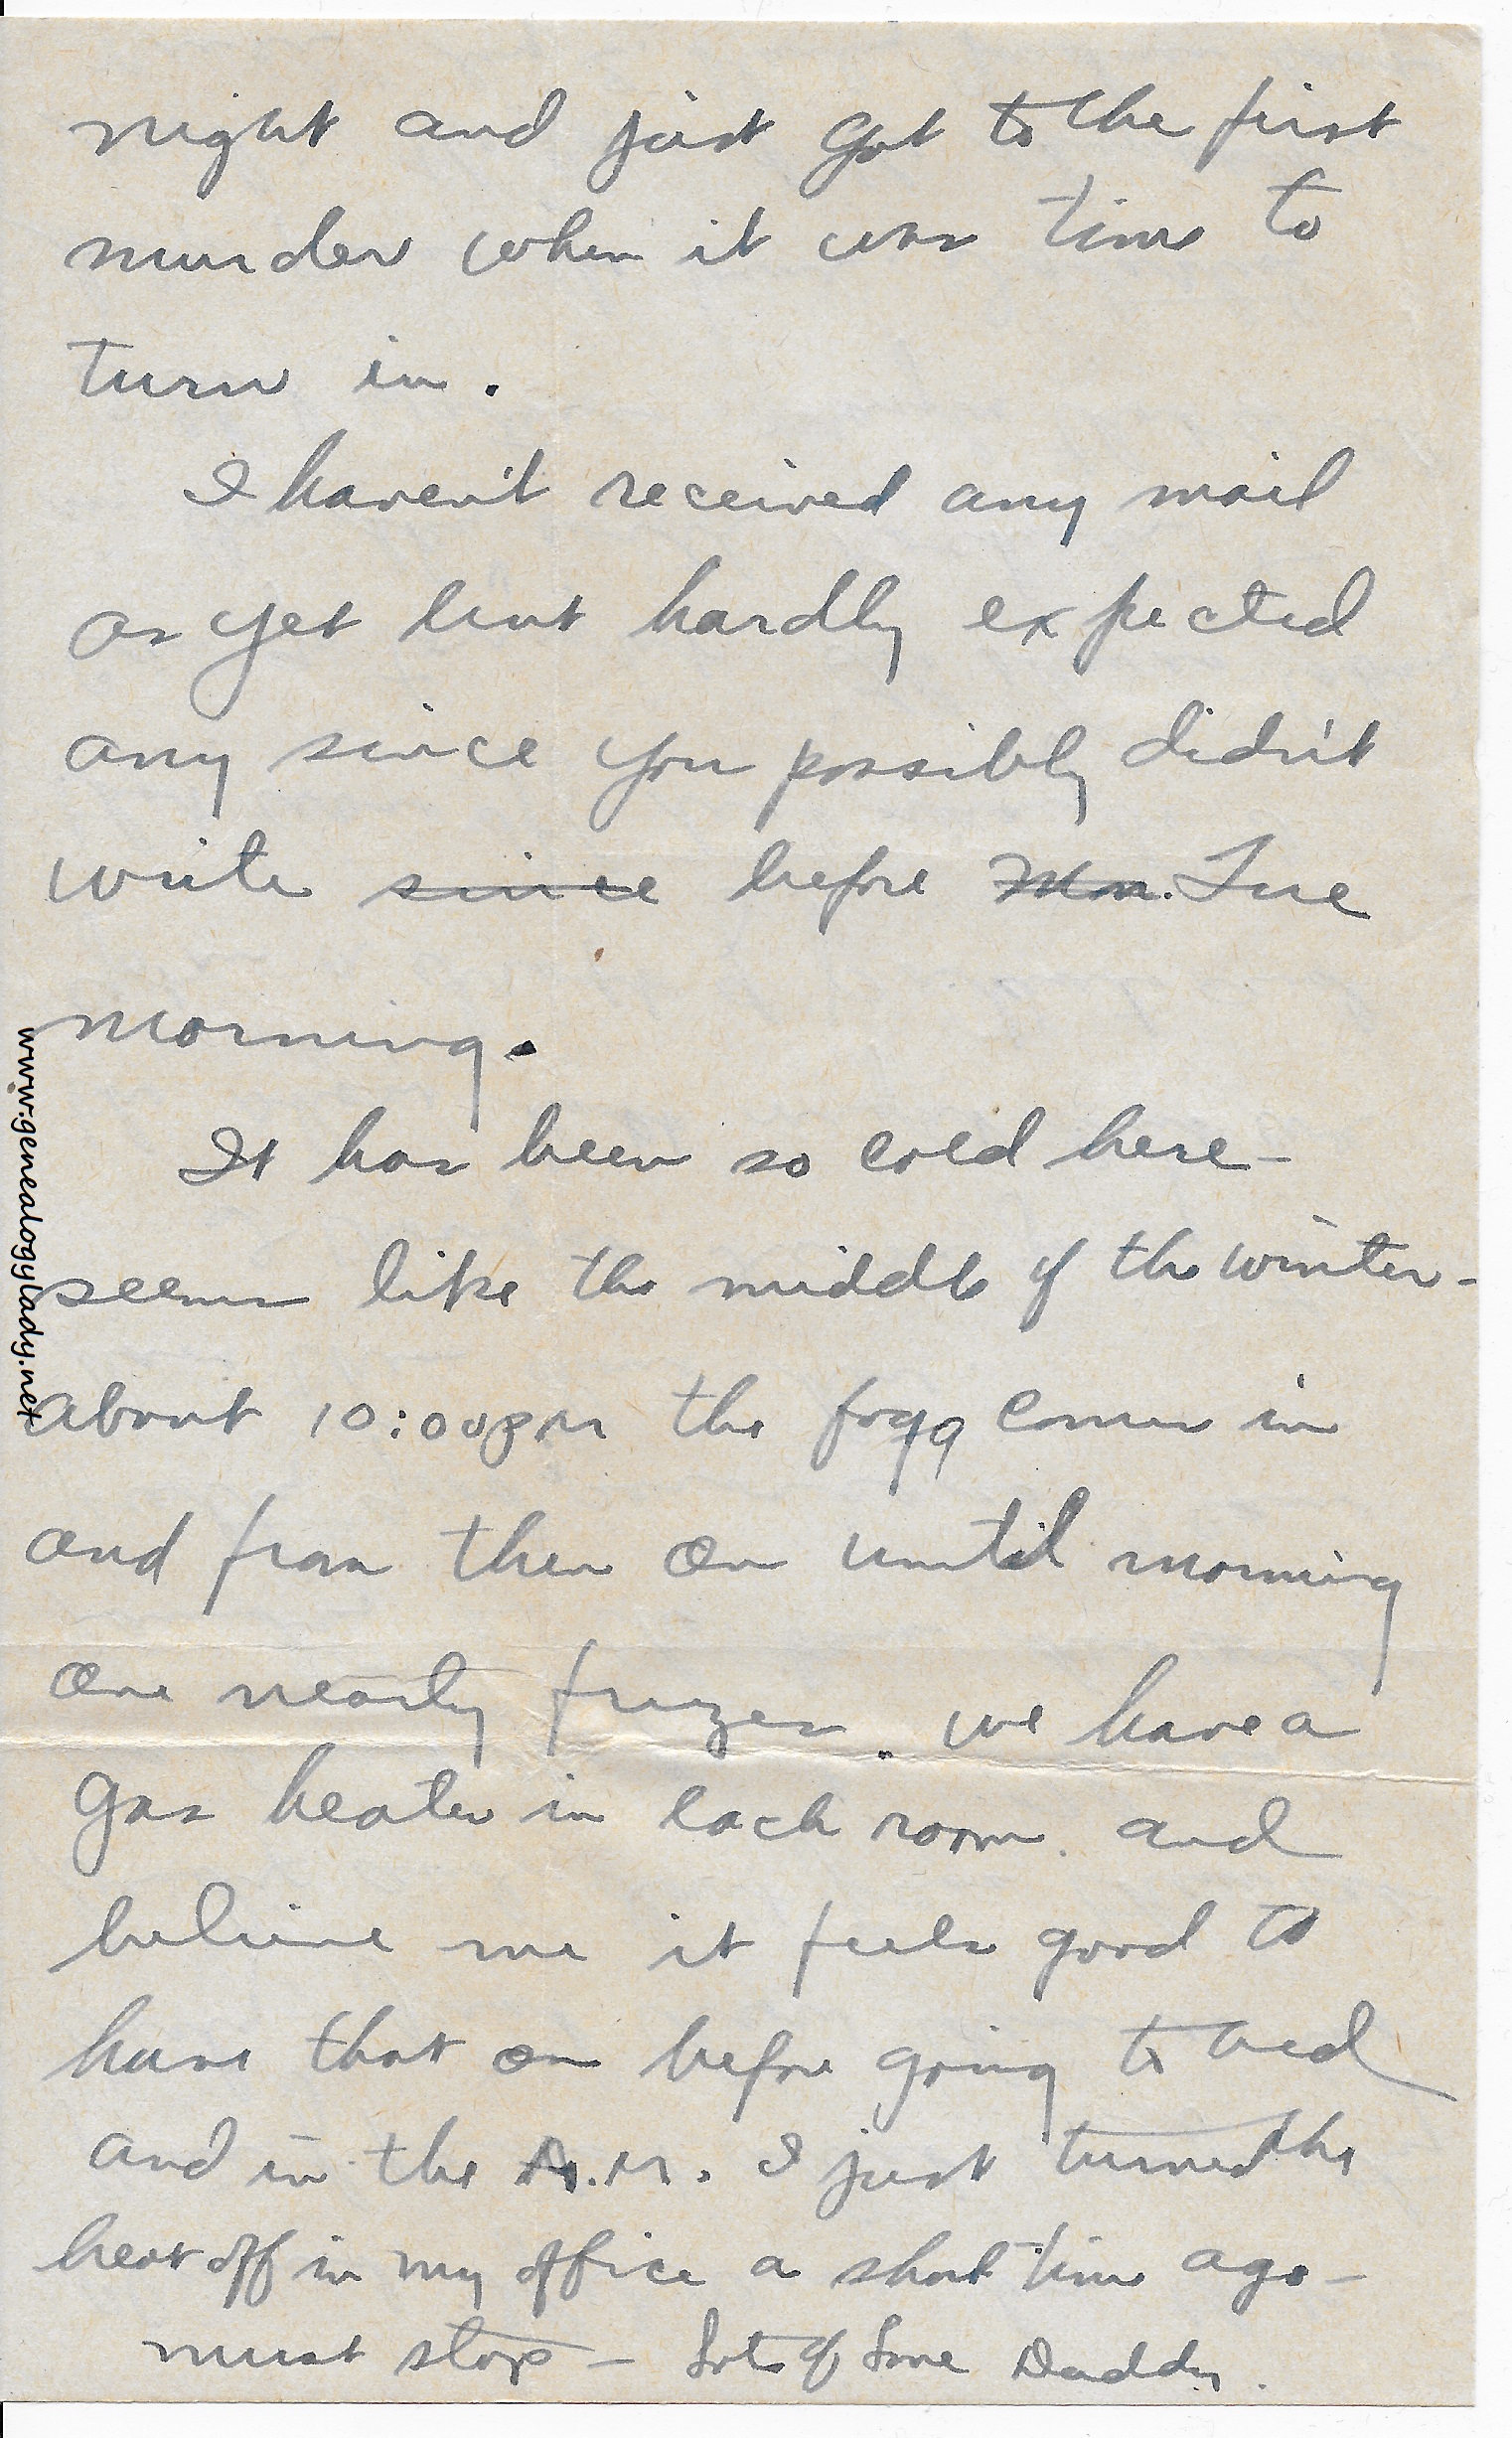 night and just got to the first
murder when it was time to
turn in.
I haven't received any mail
as yet but hardly expected
any since you possibly didn't
write since before Mon. Tue
morning.
It has been so cold here -
seems like the middle of the winter -
about 10:00pm the fogg comes in
and from then on until morning
one nearly freezes. we have a
gas heater in each room. and
believe me it feels good to
have that on before going to bed
and in the A.M. I just turned the
heat off in my office a short time ago -
must stop - Lots of Love Daddy.
www.genealogylady.net